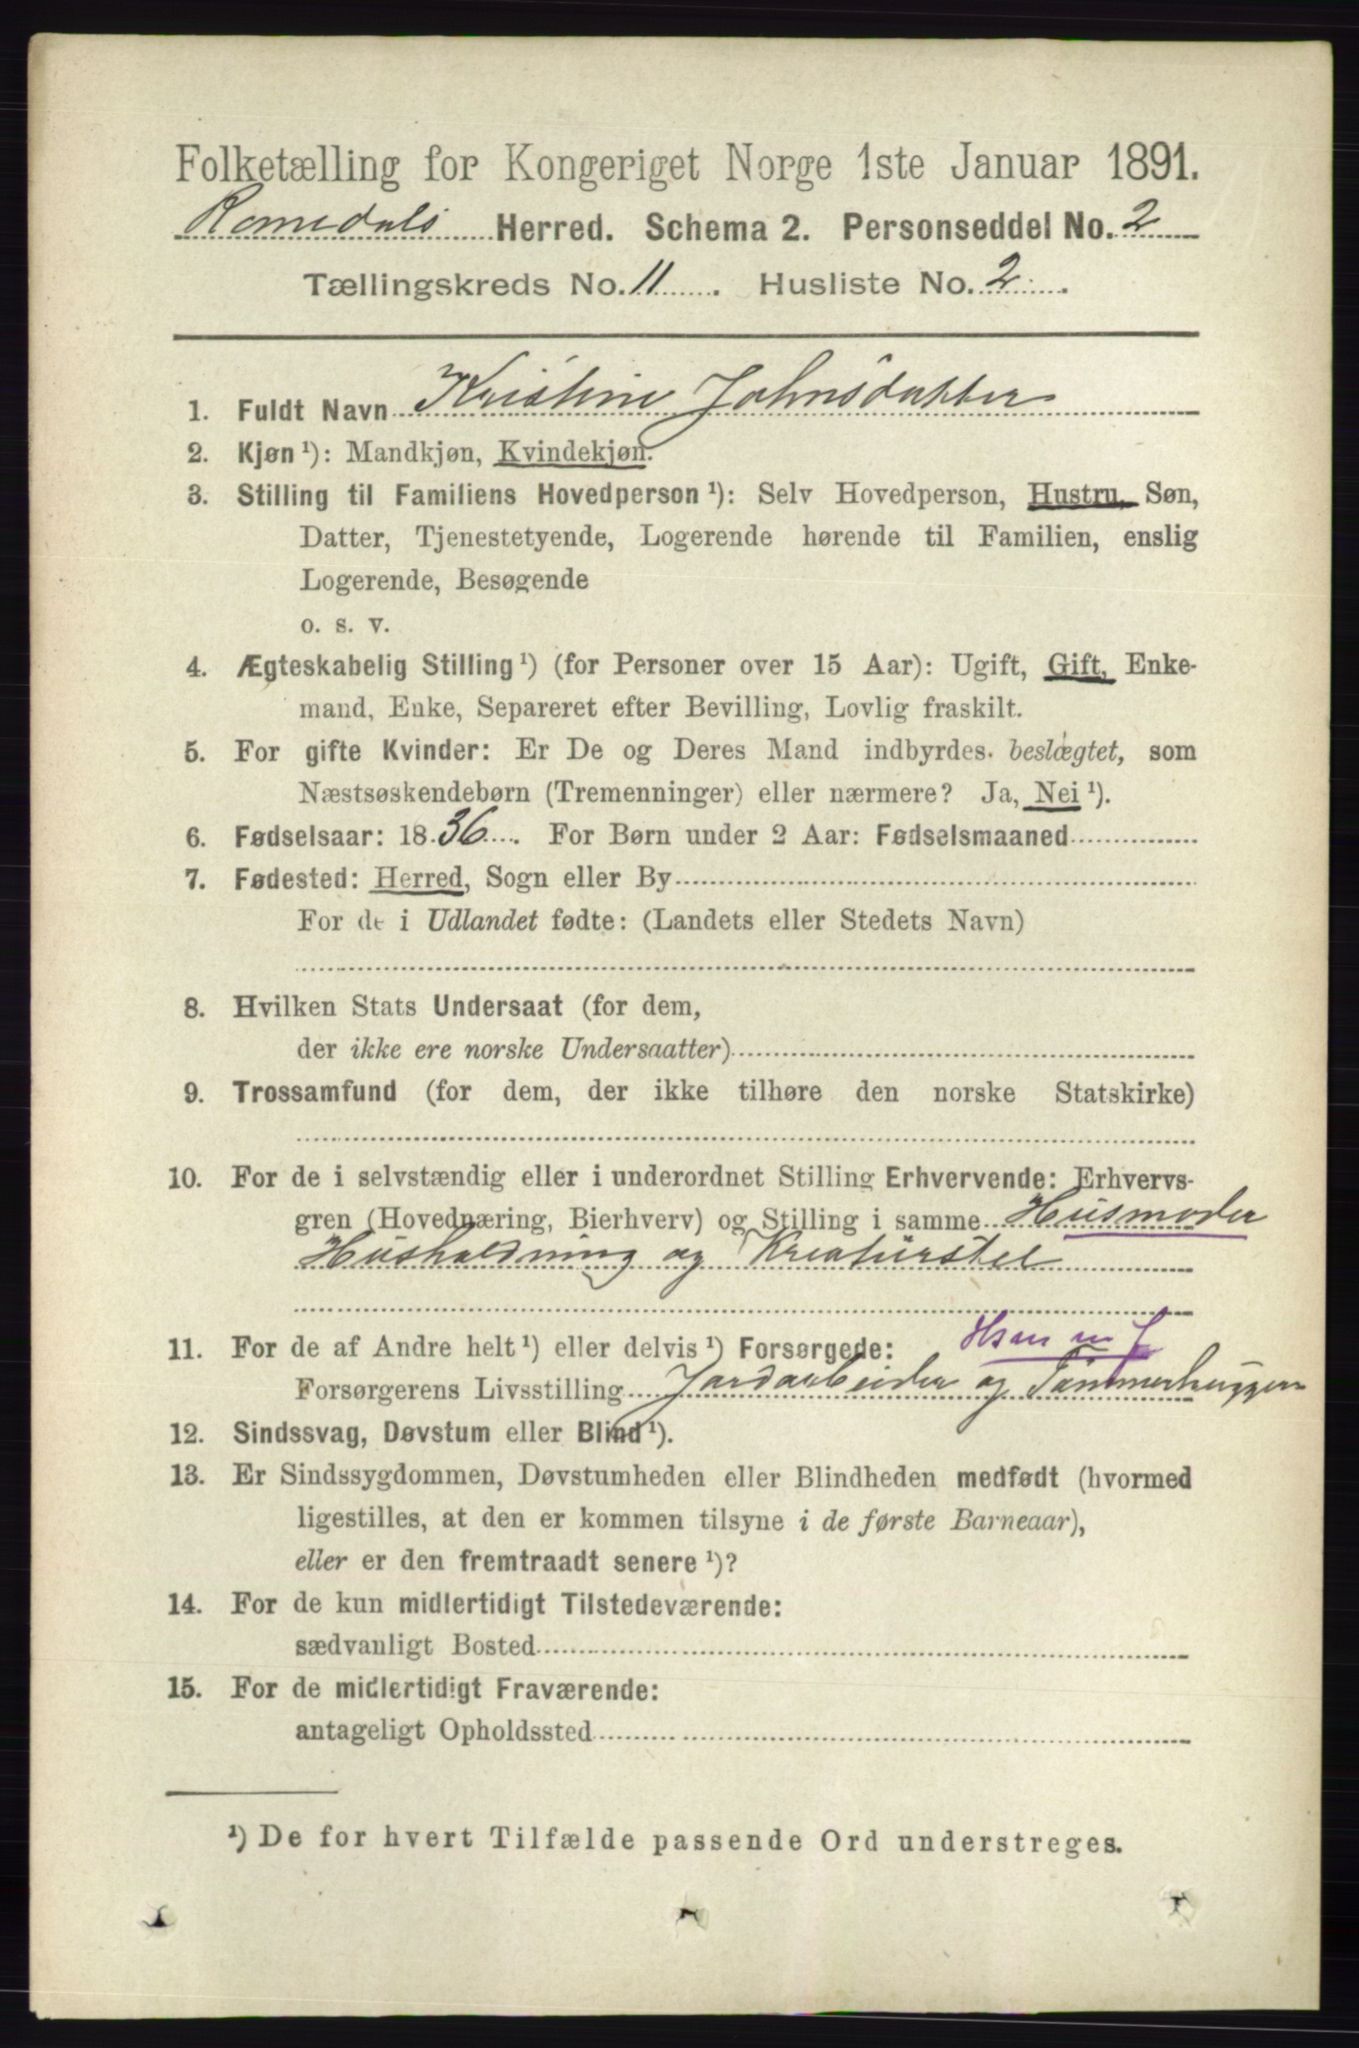 Folketælling for Kongeriget Norge 1ste Januar 1891.
Romedals Herred. Schema 2. Personseddel No. 2
Tællingskreds No. 11 . Husliste No. 2 .
1. Fuldt Navn Kristine Johnsdatter
2. Kjøn ¹): Mandkjøn, Kvindekjøn.
3. Stilling til Familiens Hovedperson ¹): Selv Hovedperson, Hustru, Søn,
Datter, Tjenestetyende, Logerende hørende til Familien, enslig
Logerende, Besøgende
o. s. v.
4. Ægteskabelig Stilling ¹) (for Personer over 15 Aar): Ugift, Gift, Enke-
mand, Enke, Separeret efter Bevilling, Lovlig fraskilt.
5. For gifte Kvinder: Er De og Deres Mand indbyrdes beslægtet, som
Næstsøskendebørn (Tremenninger) eller nærmere? Ja, Nei ¹).
6. Fødselsaar: 1836. For Børn under 2 Aar: Fødselsmaaned
7. Fødested: Herred, Sogn eller By
For de i Udlandet fødte: (Landets eller Stedets Navn)
8. Hvilken Stats Undersaat (for dem,
der ikke ere norske Undersaatter)
9. Trossamfund (for dem, der ikke tilhøre den norske Statskirke)
10. For de i selvstændig eller i underordnet Stilling Erhvervende: Erhvervs-
gren (Hovednæring, Bierhverv) og Stilling i samme Husmoder
Husholdning og Kreaturstel
11. For de af Andre helt ¹) eller delvis ¹) Forsørgede: Hsm m J
Forsørgerens Livsstilling Jordarbeider og Tømmerhugger
12. Sindssvag, Døvstum eller Blind ¹).
13. Er Sindssygdommen, Døvstumheden eller Blindheden medfødt (hvormed
ligestilles, at den er kommen tilsyne i de første Barneaar),
eller er den fremtraadt senere ¹)?
14. For de kun midlertidigt Tilstedeværende:
sædvanligt Bosted
15. For de midlertidigt Fraværende:
antageligt Opholdssted
¹) De for hvert Tilfælde passende Ord understreges.